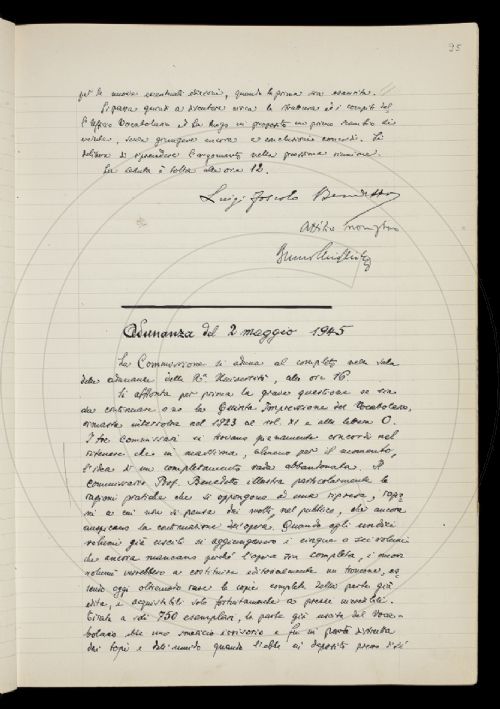 95
per le nuove eventuali edizioni, quando la prima sia esaurita.
Si passa quindi a discutere circa la struttura ed i compiti del
l'Ufficio Vocabolario ed ha luogo in proposito un primo scambio di
vedute, senza giungere ancora a conclusioni concordi. Si
delibera di riprendere l'argomento nella prossima riunione.
La seduta è tolta alle ore 12.
Luigi Foscolo Benedetto
Attilio Momigliano
Bruno Migliorini
Adunanza del 2 maggio 1945
La Commissione si aduna al completo nella sala
delle adunanze della Rª Università, alle ore 16.
Si affronta per prima la grave questione se sia
da continuare o no la Quinta Impressione del Vocabolario,
rimasta interrotta nel 1923 al vol. XI e alla lettera O.
I tre Commissari si trovano pienamente concordi nel
ritenere che in massima, almeno per il momento,
l'idea di un completamento vada abbandonata. Il
Commissario Prof. Benedetto illustra particolarmente le
ragioni pratiche che si oppongono ad una ripresa, ragio-
ni a cui non si pensa dai molti, nel pubblico, che ancora
auspicano la continuazione dell'opera. Quando agli undici
volumi già usciti si aggiungessero i cinque o sei volumi
che ancora mancano perché l'opera sia completa, i nuovi
volumi verrebbero a costituire editorialmente un troncone, es-
sendo oggi oltremodo rare le copie complete della parte già
edita, e acquistabili solo fortunosamente a prezzi incredibili.
Tirata a soli 750 esemplari, la parte già uscita del Voca-
bolario ebbe uno smercio irrisorio e fu in parte distrutta
dai topi e dall'umido quando l'ebbe in deposito presso di sé